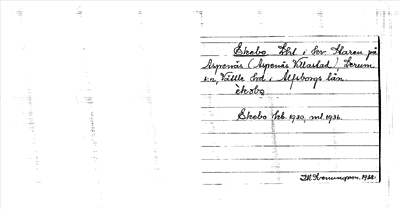 Ekebo, Lht i kv. Haren på
Aspenäs (Aspenäs Villastad), Lerum
s:n, Vättle hd. i Älfsborgs län.
ekobo
Ekebo beb. 1930, ml 1936.
1938.